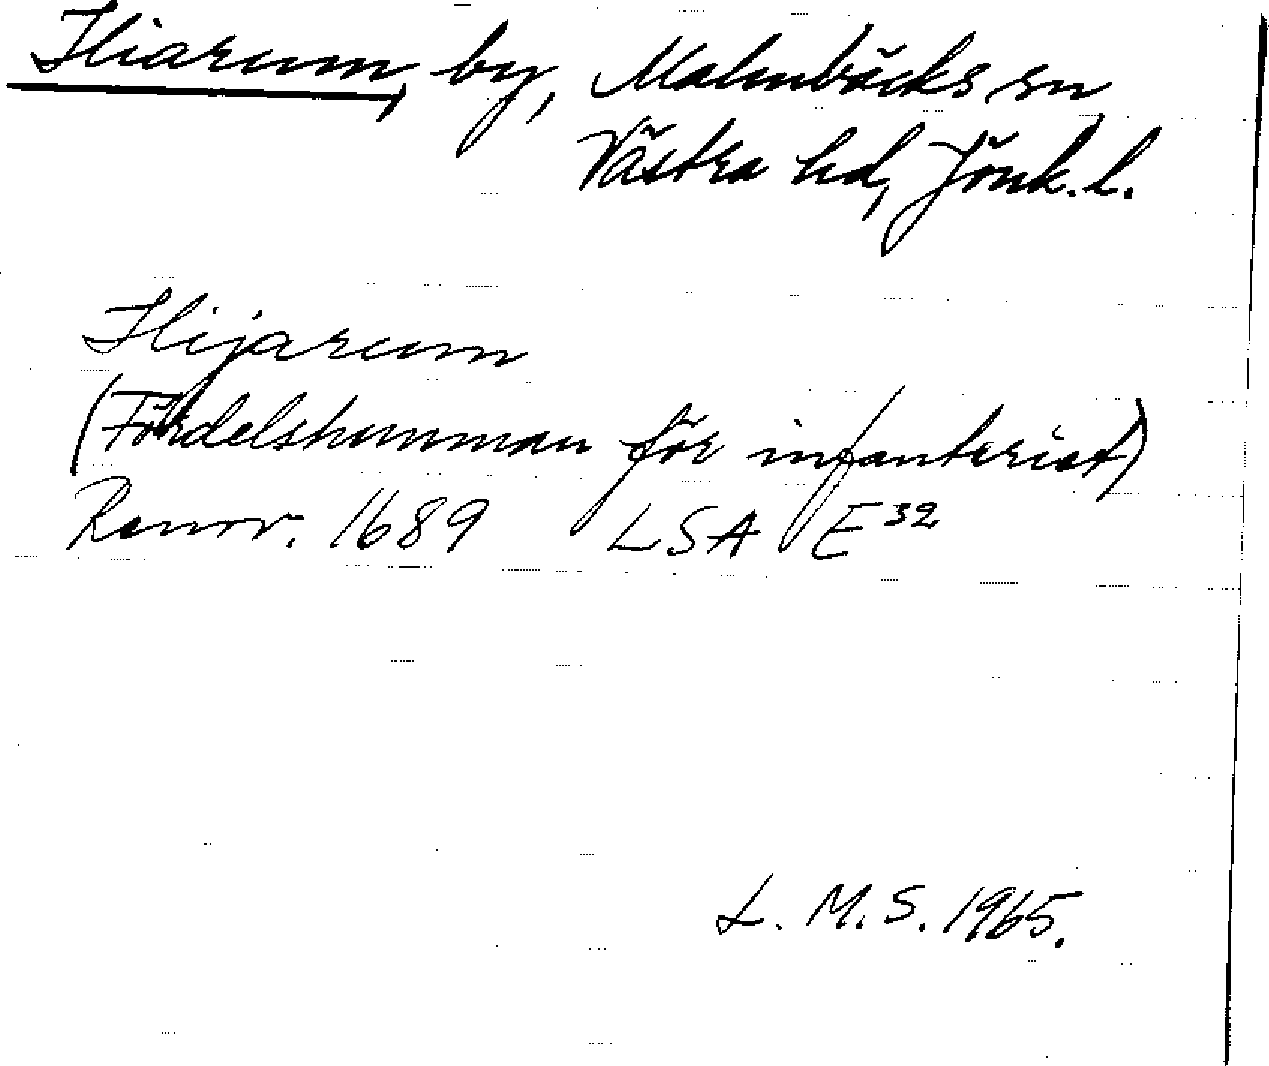 Hiarum, by, Malmbäcks sn
Västra hd, Jönk. l.
Hijarum
(Fördelshemman för infanterist)
Renov. 1689 LSA E32
L. M. S. 1965.